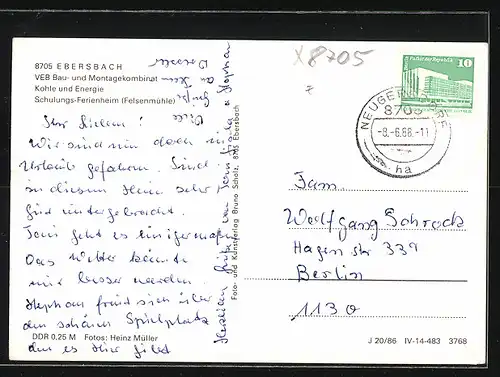 8705 EBERSBACH
VEB Bau- und Montagekombinat
Kohle und Energie
Schulungs-Ferienheim (Felsenmühle)
Ihr Lieben!
Wir sind nun doch in
Urlaub gefahren. Sind
in diesem Heim sehr
gut untergebracht.
Toni geht es einigermaßen
Das Wetter könnte
nur besser werden.
Stephan freut sich über
den schönen Spielplatz
den es hier gibt
DDR 0,25 M Fotos: Heinz Müller
Viele
Grüße
an
Herzlichen Grüße von Toni u Stephan
Foto- und Kunstverlag Bruno Scholz, 8705 Ebersbach
X 8705
Palast der Republik
10
NEUGERSDORF
8706
-8.-6.88.-11
ha
Fam.
Wolfgang Schrock
Hagen str 339
Berlin
1130
J 20/86 IV-14-483 3768